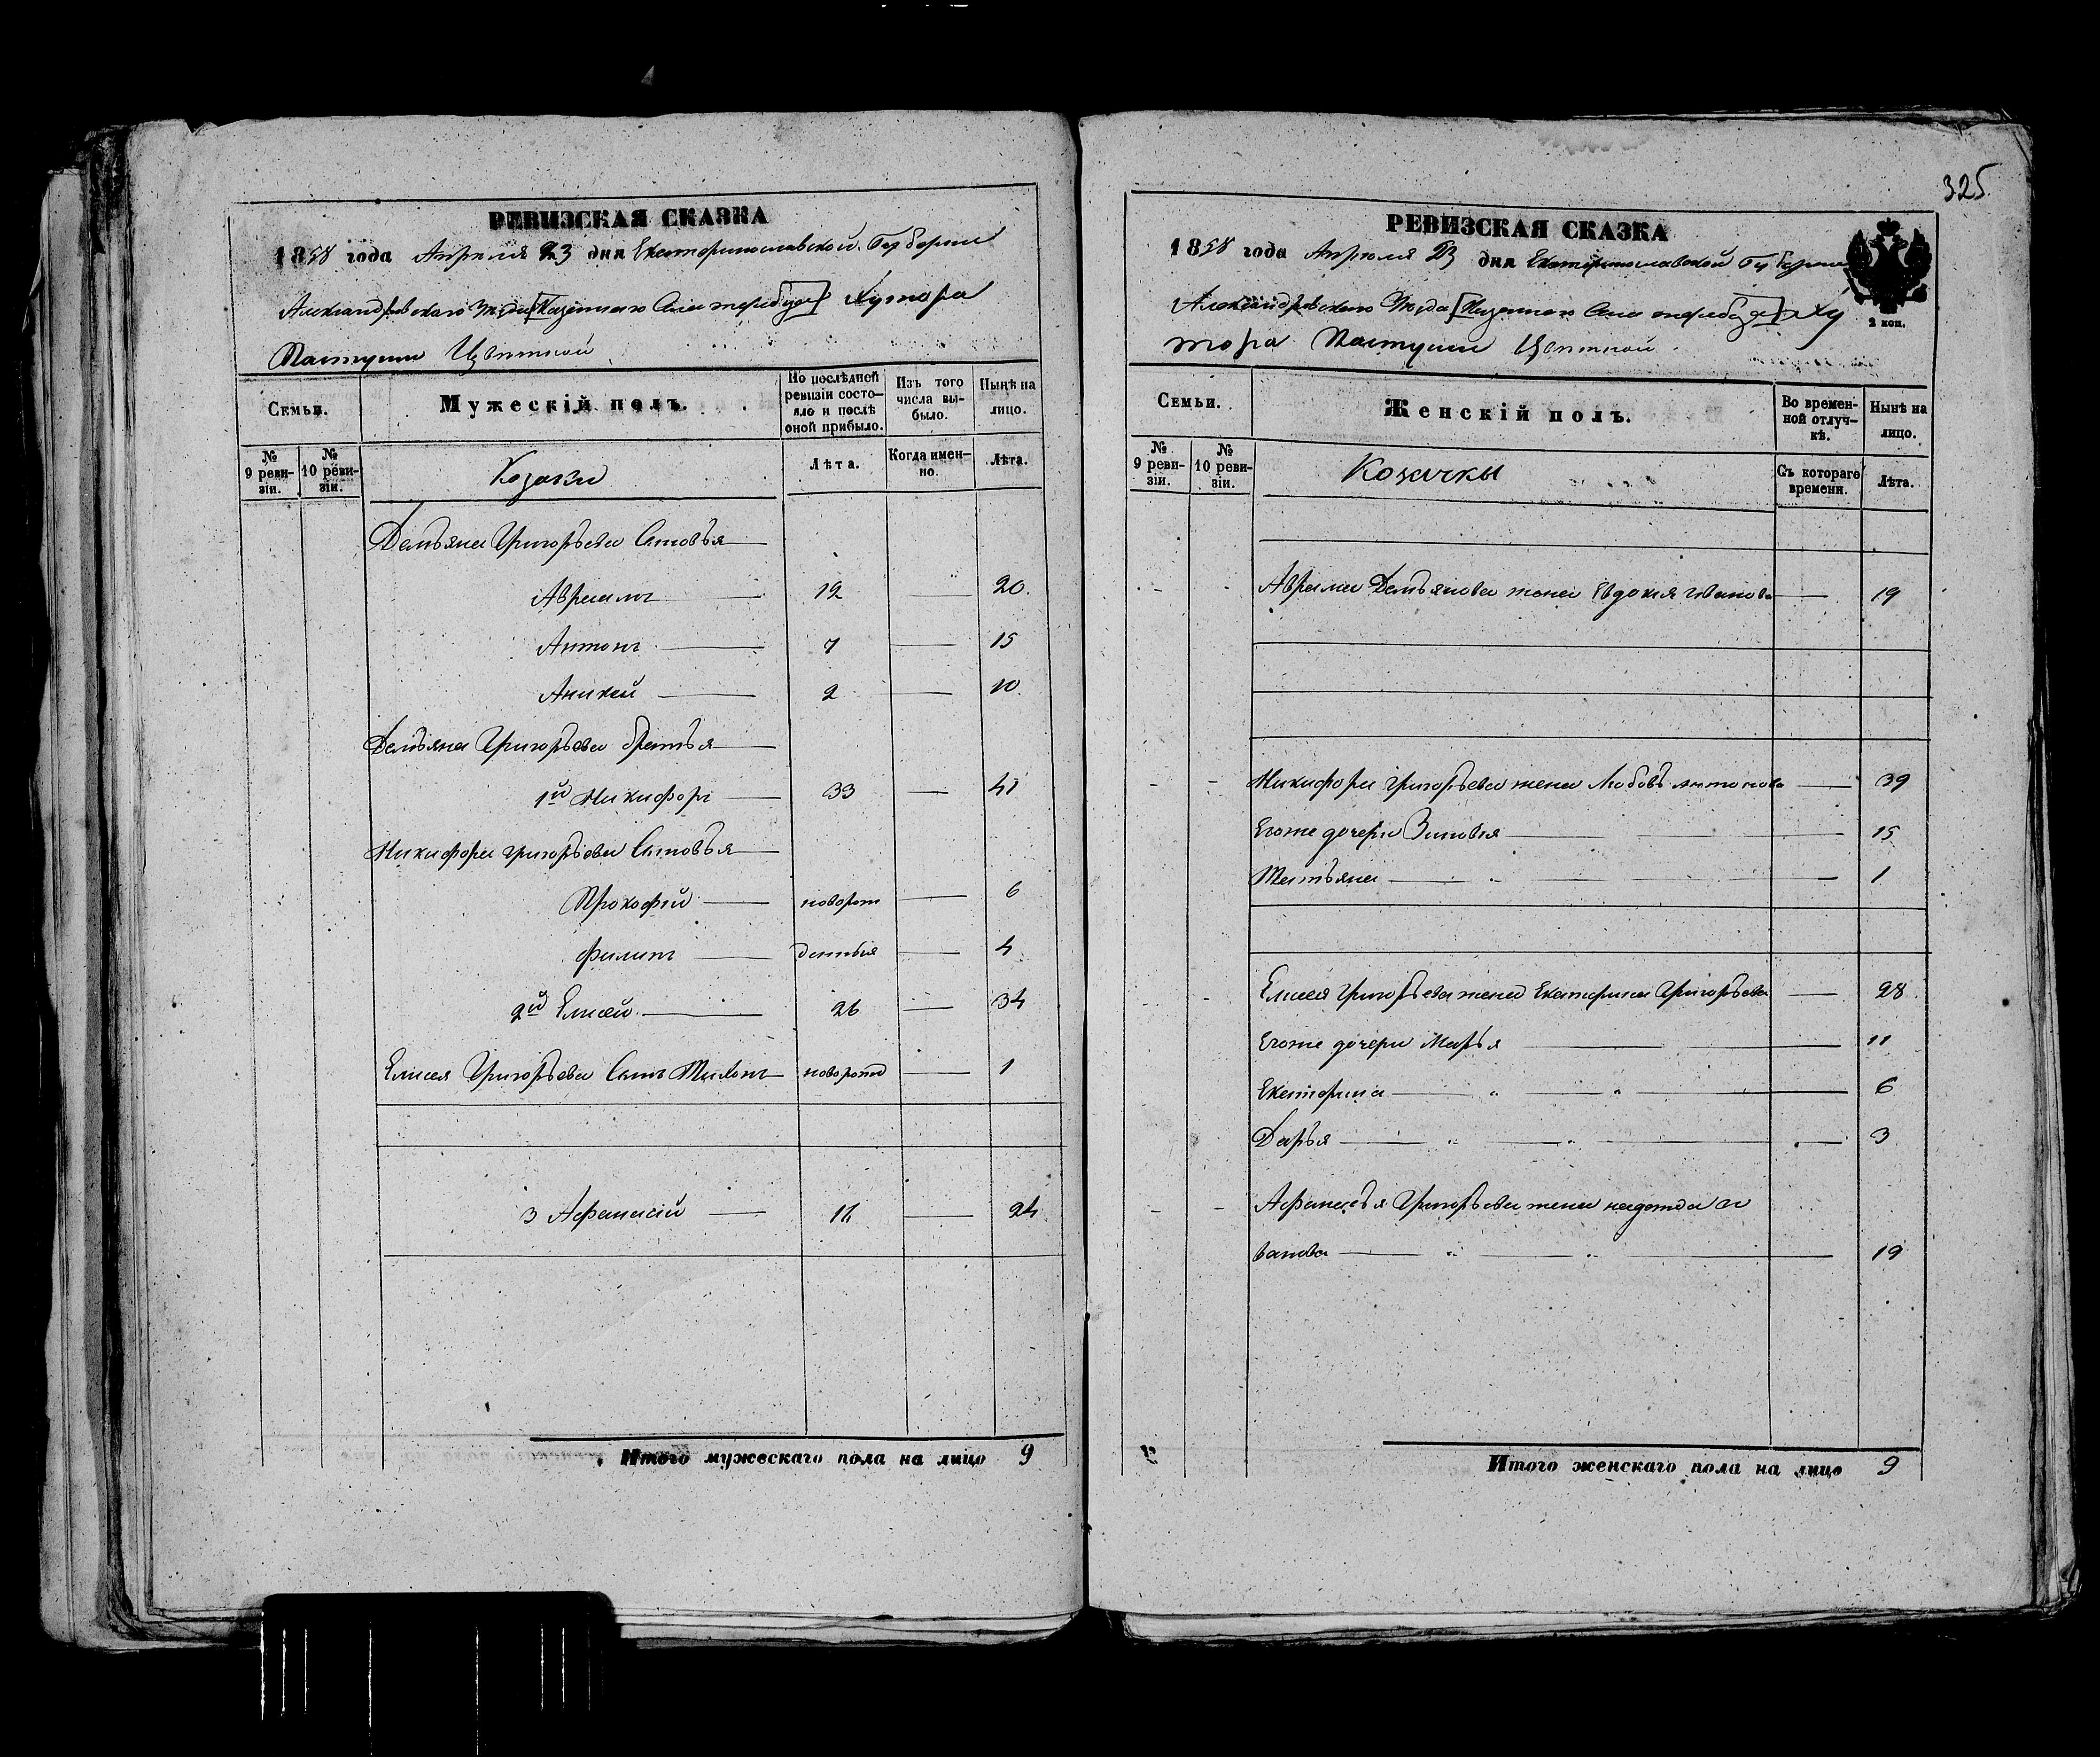 325
РЕВИЗСКАЯ СКАЗКА
1858 года Апреля 23 дня Екатеринославской Губернии
Александровскаго Казеннаго Села Хутора
Цвітной
Семьи.
Мужескій полъ.
По послѣдней ревизіи состояло и послѣ оной прибыло.
Изъ того числа выбыло.
Нынѣ на лицо.
№ 9 ревизіи.
№ 10 ревизіи.
Козаки
Лѣта.
Когда именно.
Лѣта.
Демъяна Григоръева Сыновъя
Авраамъ 12 20.
Антонъ 7 15
Аникей 2 10
Демъяна Григоръева братъя
1й Никифоръ 33 41
Никифора Григоръева Сыновъя
Прокофий новорож 6
Филипъ 4
2й Елисей 26 34
Елисея Григоръева Сынъ Тихонъ новорожд 1
3 Афанасій 16 24
Итого мужескаго пола на лицо 9
РЕВИЗСКАЯ СКАЗКА
1858 года Апреля 23 дня Екатеринославской Губернии
Александровскаго Казеннаго Села Ху
тора Цвітной
2 коп.
Семьи.
Женскій полъ.
Во временной отлучкѣ.
Нынѣ на лицо.
№ 9 ревизіи.
№ 10 ревизіи.
Козачкы
Съ котораго времени.
Лѣта.
Аврама Демъянова жена Евдокия иванова 19
Никифора Григоръева жена Любовъ антонова 39
Егоже дочери Зиновия 15
Татъяна 1
Елисея Григоръева жена Екатерина Григоръева 28
Егоже дочери Маръя 11
Екатерина 6
Даръя 3
Афанасъя Григоръева жена и
ванова 19
Итого женскаго пола на лицо 9